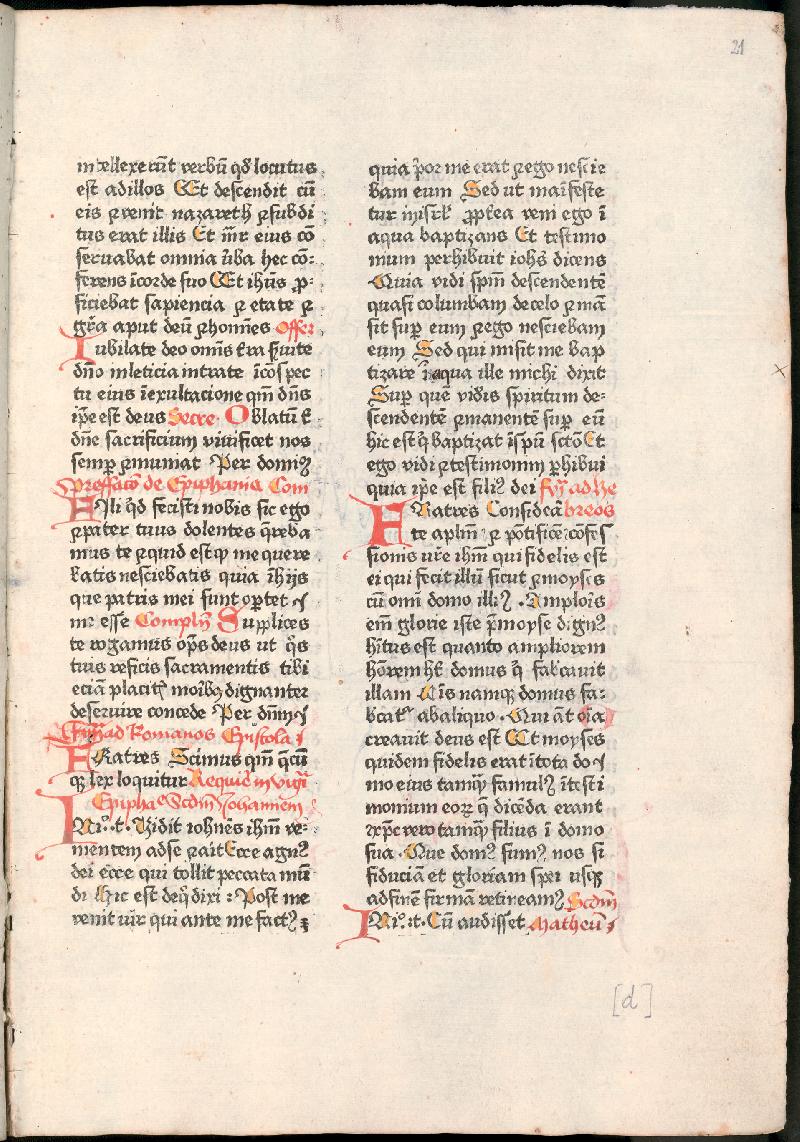 21
intellexerunt verbū qd̄ locutus
est ad illos Et descendit cū
eis ⁊ venit nazareth ⁊ subdi
tus erat illis Et mr̄ eius cō
servabat omnia v̄ba hec cō-
ferens ī corde suo Et ihūs p̱
ficiebat sapiencia ⁊ etate ⁊
grā aput deū ⁊ homīes Offer
Iubilate deo omīs t̄ra s̄uite
dn̄o in leticia intrate ī cōspec
tu eius ī exultacione qm̄ dn̄s
ip̄e est deus Secre. Oblatū t̄
dn̄e sacrificium vivificet nos
semp̱ ⁊ muniat Per dominꝫ
Preffatō de Epiphania Com
Fili qd fecisti nobis sic ego
⁊ pater tuus dolentes q̄reba
mus te ⁊ quid est qꝫ me quere
batis nesciebatis quia ī hijs
que patris mei sunt oportet
me esse Compl̄ Supplices
te rogamus op̄s deus ut q̄s
tuis reficis sacramentis tibi
eciā placitꝭ moribꝫ dignanter
deservire concede Per dn̄m
ad Romanos Epistola
FRatres Scimus qm̄ q̄cū
qꝫ lex loquitur Require in vigī
Epiphaīe Scdm̄ Johannem
INi.º.t. Vidit iohn̄es ihm̄ ve-
nientem ad se ⁊ ait Ecce agnꝰ
dei ecce qui tollit peccata mū
di Hic est de q̄ dixi : Post me
venit vir qui ante me factꝰ
quia p̄or me erat ⁊ ego nescie
bam eum Sed ut maīfeste
tur in isrl̄ p̱pt̄ea veni ego ī
aqua baptizans Et testimo
nium perhibuit ioh̄s dicens
Quia vidi sp̄m descendentē
quasi columbam de celo ⁊ mā
sit sup̱ eum ⁊ ego nesciebam
eum Sed qui misit me bap
tizare ī aqua ille michi dixit
Sup̱ quē videris spiritum de-
scendentē ⁊ manentē sup̱ eū
hic est q̄ baptizat ī sp̄u sctō Et
ego vidi ⁊ testimoniū p̱hibui
quia ip̄e est filiꝰ dei ad he
FRatres Considera breos
te aplm̄ ⁊ pōtificē cōfes
sionis vr̄e ihm̄ qui fidelis est
ei qui fecit illū sicut ⁊ moyses
cū om̄i domo illiꝰ. Amplōis
em̄ glorie iste p̄ moyse dignꝰ
hītus est quanto ampliorem
honorem ht̄ domus q̄ fabricavit
illam Oīs namqꝫ domus fa-
bricatꝰ ab aliquo. Qui āt oīa
creavit deus est Et moyses
quidem fidelis erat ī tota do
mo eius tamqꝫ famulꝰ ī testi
monium eorꝝ q̄ dicēda erant
xp̄c vero tamqꝫ filius ī domo
sua. Que domꝰ sumꝰ nos si
fiduciā et gloriam spei usqꝫ
ad finē firmā retineamꝰ Scdm̄
INi.º.t. Cū audisset Matheū
[d]